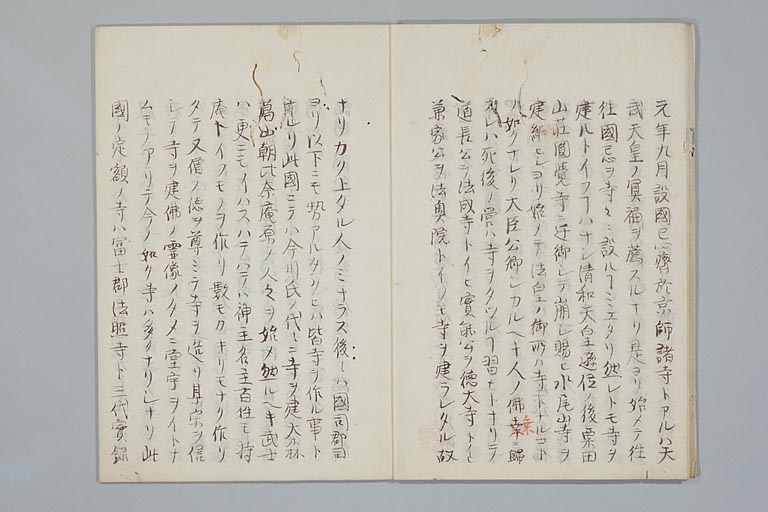 元年九月設國忌齋於京師諸寺トアルハ天
武天皇ノ冥福ヲ薦スルナリ是ヨリ始メテ往
往國忌ヲ寺々ニ設ルヿミエタリ然レトモ寺ヲ
建ルトイフヿハナシ清和天皇遜位ノ後粟田
山荘圓覺寺ニ迁御シテ崩シ賜ヒ水尾山寺ヲ
建納ヒシヨリ始メテ法皇ノ御所ハ寺トナルコト
ノ如クナレリ大臣公卿シカルヘキ人ノ佛乗ニ歸
スレハ死後ノ営ハ寺ヲタツルヿ習ヒトナリテ
道長公ヲ法成寺トイヒ實能公ヲ徳大寺トイヒ
兼家公ヲ法興院トイフモ寺ヲ建ラレタル故
ナリカク上タル人ノミナラス後々ハ國司郡司
ヨリ以下ニモ勢アルタクヒハ皆寺ヲ作ル事ト
ナレリ此國ニテハ今川氏ノ代々ニ寺ヲ建
葛山朝比奈庵原ノ人々ヲ始メ然ルヘキ武士
ハ更ニモイハスハテハテハ神主名主百姓モ持
庵トイフモノヲ作リ數モカキリモナリ作リ
タテ又僧ノ徳ヲ尊ミテ寺ヲ造リ其宗ヲ信
シテ寺ヲ建佛ノ霊像ノタメニ堂宇ヲイトナ
ムモアリテ今ノ如ク寺ハ多クナリシナリ此
國ノ定額ノ寺ハ富士郡法照寺ト三代實録